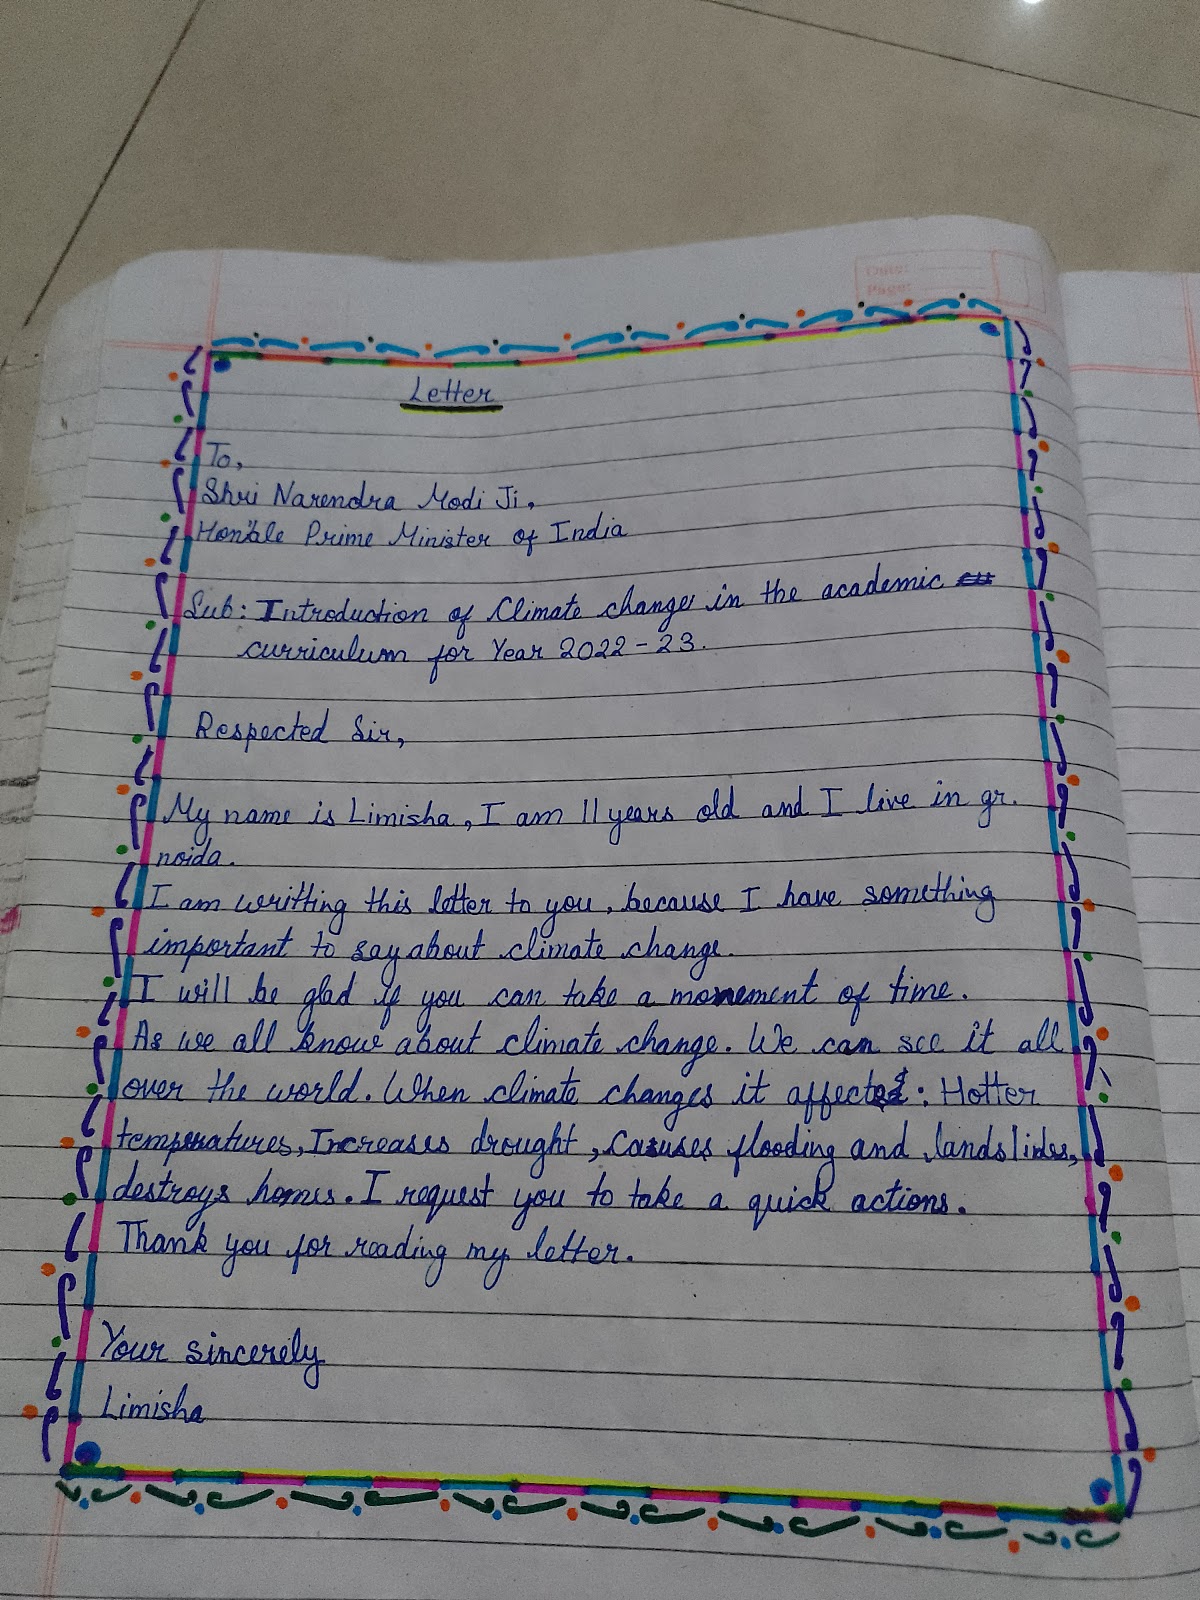 Date:
Page:
Letter
To,
Shri Narendra Modi Ji,
Hon'ble Prime Minister of India
Sub: Introduction of Climate changes in the academic
curriculum for Year 2022-23.
Respected Sir,
My name is Limisha, I am 11 years old and I live in gr.
noida.
I am writting this letter to you, because I have something
important to say about climate change.
I will be glad if you can take a monement of time.
As we all know about climate change. We can see it all
over the world. When climate changes it affects: Hotter
temperatures, Increases drought, Causes flooding and landslides,
destroys homes. I request you to take a quick actions.
Thank you for reading my letter.
Your sincerely
Limisha